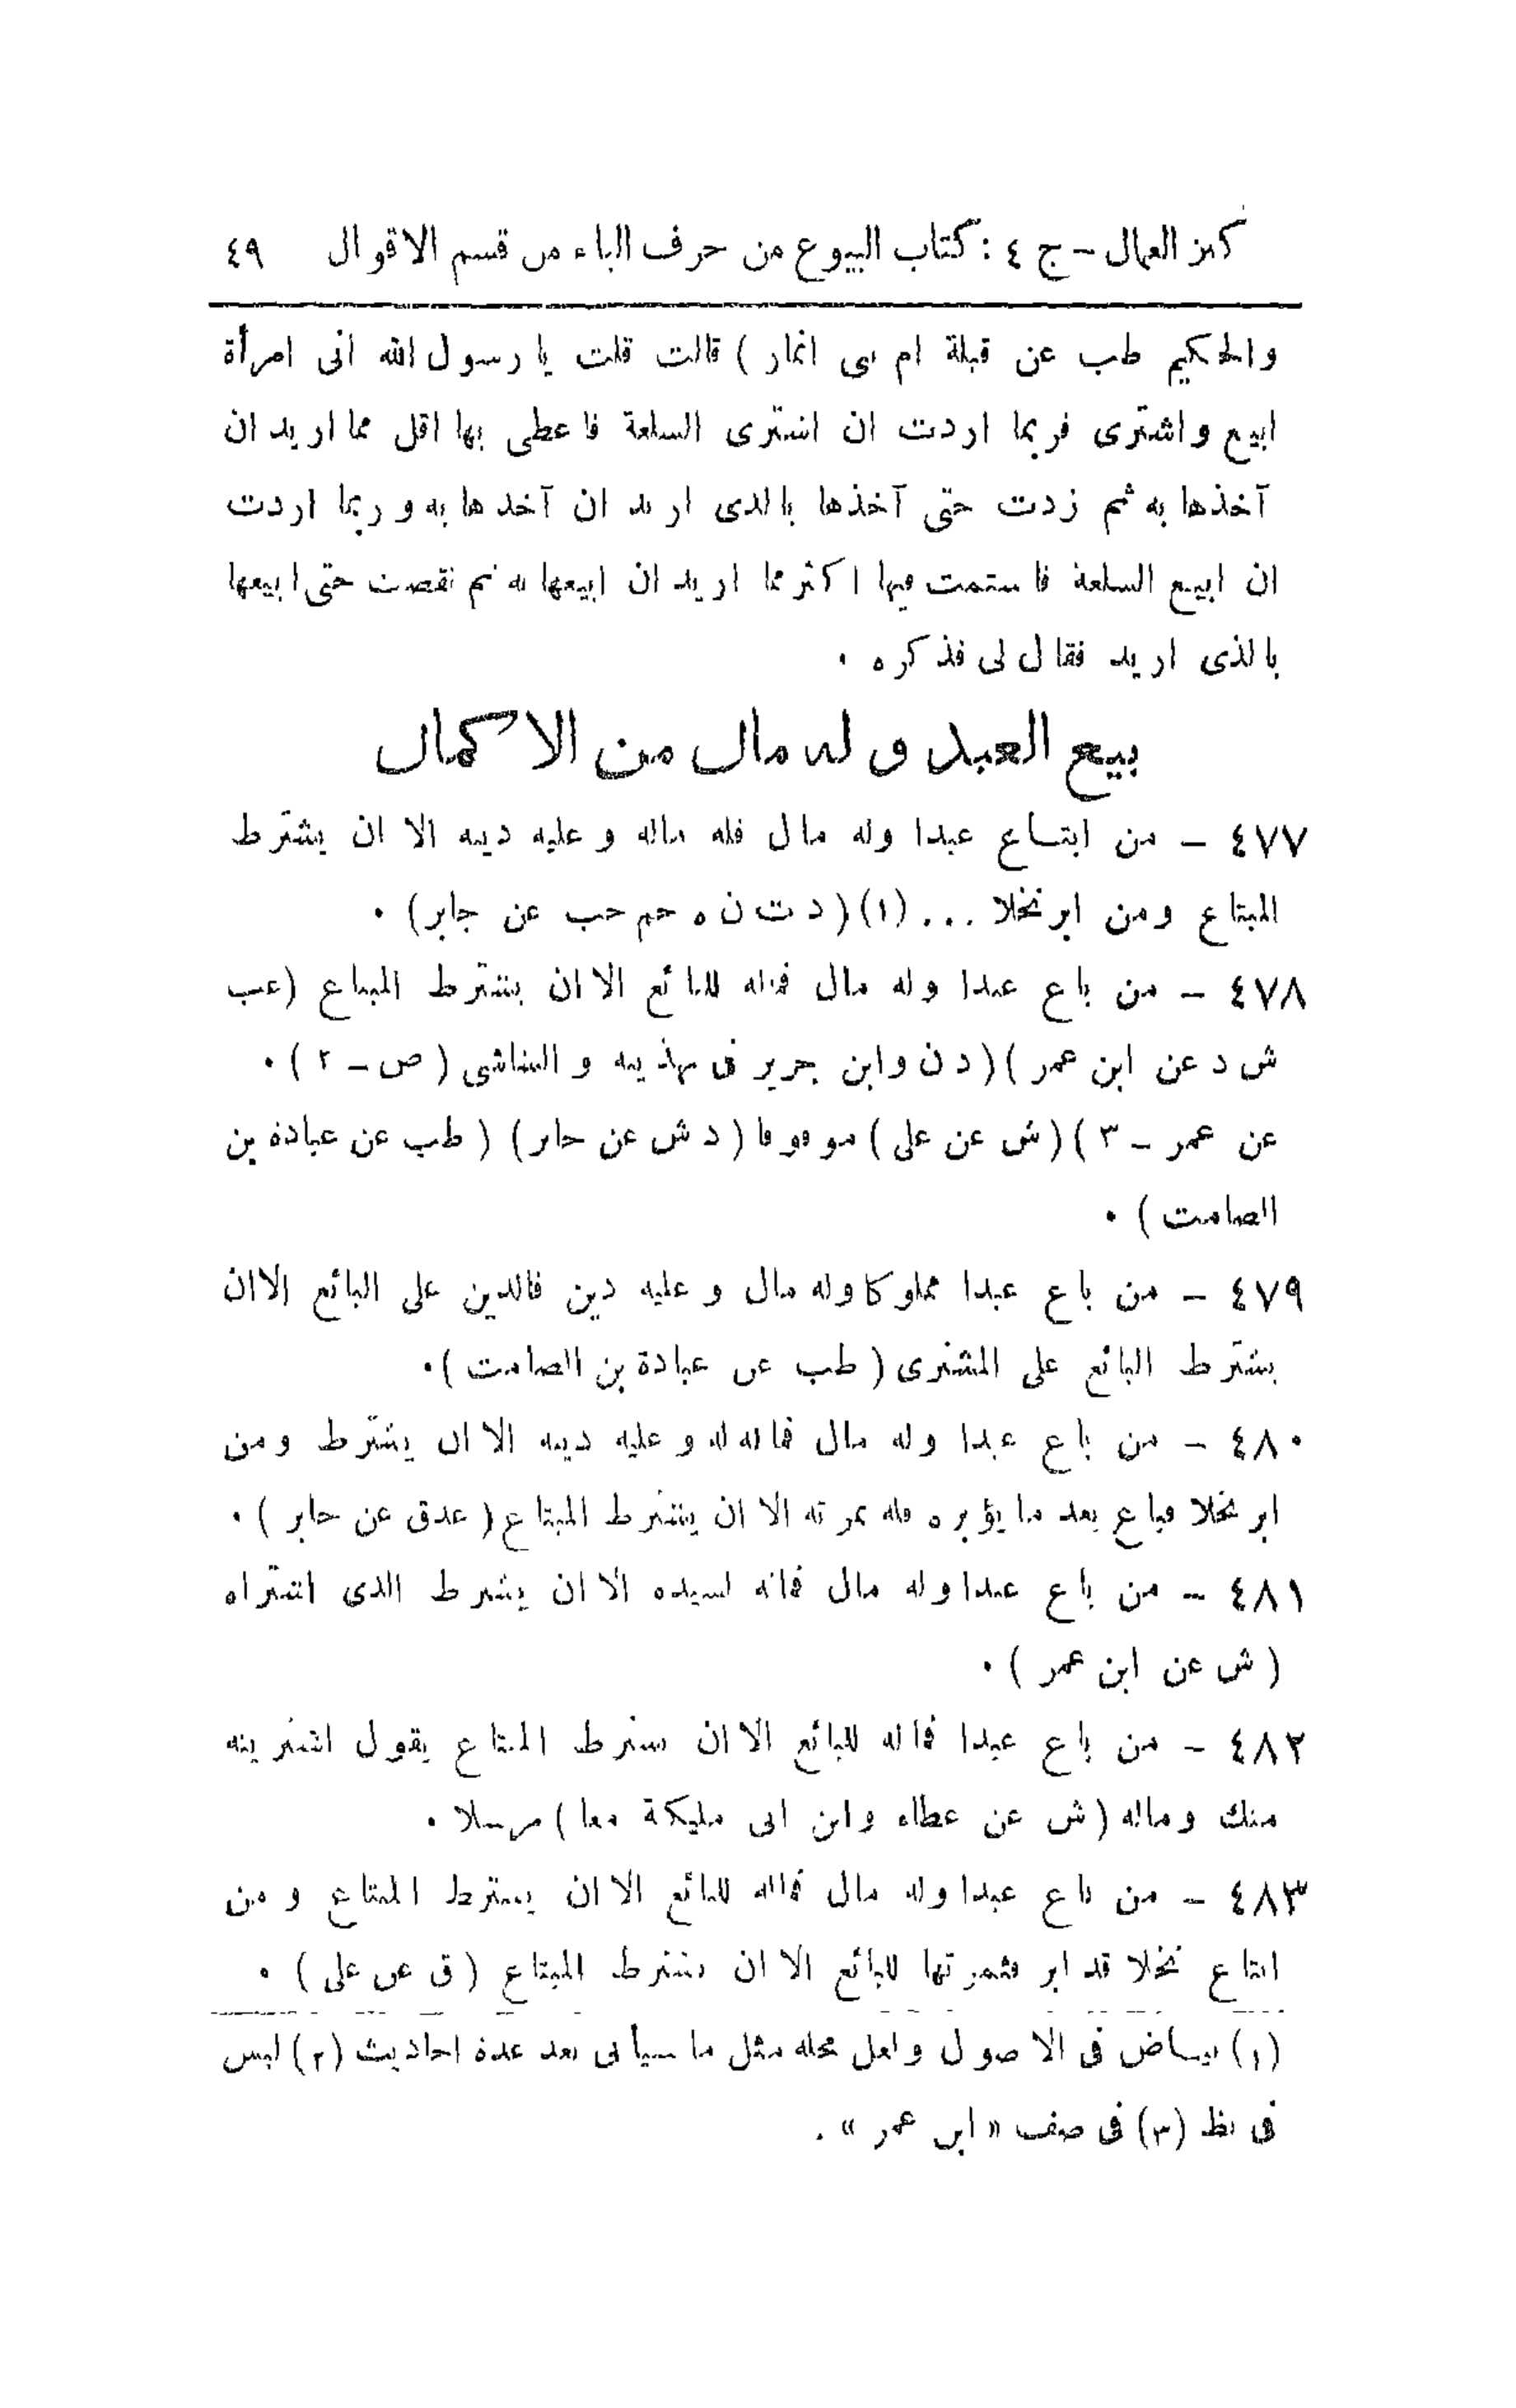 كنز العمال – ج ٤ : كتاب البيوع من حرف الباء من قسم الاقوال ٤٩
والحكيم طب عن قيلة ام بنى انمار ) قالت قلت يا رسول الله انى امرأة
ابيع واشترى فربما اردت ان اشترى السلعة فاعطى بها اقل مما اريد ان
آخذها به ثم زدت حتى آخذها بالذى اريد ان آخذها به وربما اردت
ان ابيع السلعة فاستمت فيها اكثر مما اريد ان ابيعها به ثم نقصت حتى ابيعها
بالذى اريد فقال لى فذكره ٠
بيع العبد وله مال من الاكمال
٤٧٧ – من ابتاع عبدا وله مال فله ماله وعليه دينه الا ان يشترط
المبتاع ومن ابر نخلا ... (١) ( د ت ن ه حم حب عن جابر ) ٠
٤٧٨ – من باع عبدا وله مال فماله للبائع الا ان يشترط المبتاع (عب
ش د عن ابن عمر ) ( د ن وابن جرير فى تهذيبه و الشاشى ( ص – ٢ ) ٠
عن عمر – ٣ ) (ش عن على ) موقوفا ( د ش عن جابر ) ( طب عن عبادة بن
الصامت ) ٠
٤٧٩ – من باع عبدا مملوكا وله مال وعليه دين فالدين على البائع الا ان
يشترط البائع على المشترى ( طب عن عبادة بن الصامت ) ٠
٤٨٠ – من باع عبدا وله مال فماله له وعليه دينه الا ان يشترط ومن
ابر نخلا فباع بعد ما يؤبره فله ثمرته الا ان يشترط المبتاع ( عد ق عن جابر ) ٠
٤٨١ – من باع عبدا وله مال فماله لسيده الا ان يشترط الذى اشتراه
( ش عن ابن عمر ) ٠
٤٨٢ – من باع عبدا فماله للبائع الا ان يشترط المبتاع يقول اشتريته
منك وماله ( ش عن عطاء وابن ابى مليكة معا ) مرسلا ٠
٤٨٣ – من باع عبدا وله مال فماله للبائع الا ان يشترط المبتاع ومن
ابتاع نخلا قد ابر فثمرتها للبائع الا ان يشترط المبتاع ( ق عن على ) ٠
(١) بياض فى الاصول ولعل محله مثل ما سيأتى بعد عدة احاديث (٢) ليس
فى نظ (٣) فى صف « ابن عمر » .